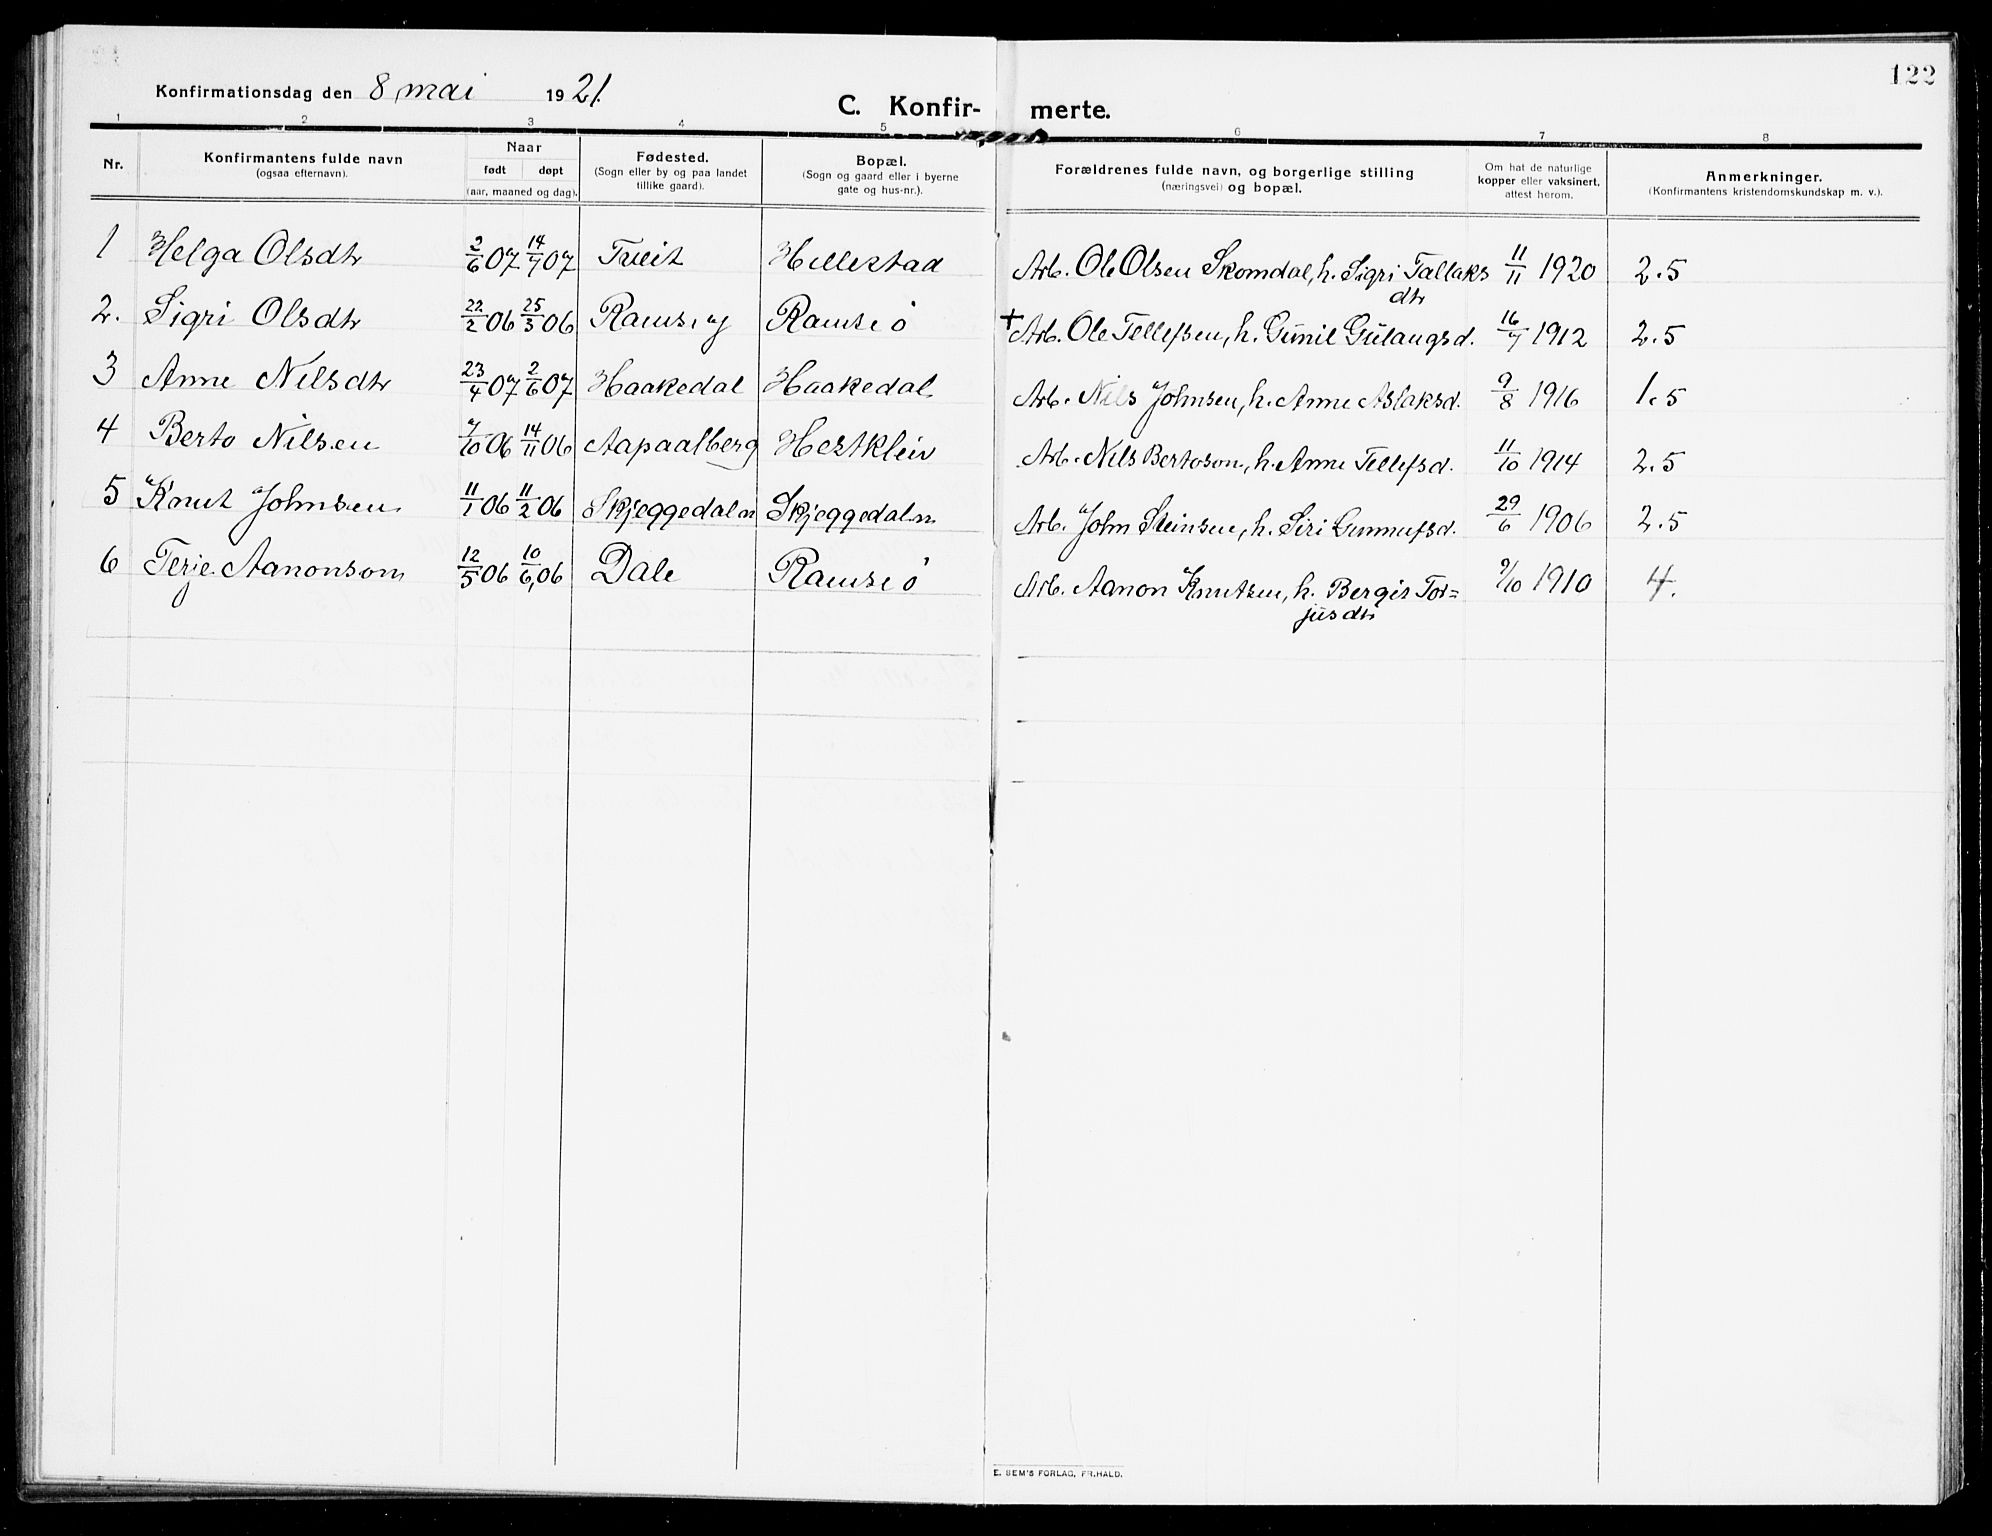 122
Konfirmationsdag den 8 mai 1921.
C. Konfirmerte.
1 2 3 4 5 6 7 8
Nr.
Konfirmantens fulde navn
(ogsaa efternavn).
Naar
født døpt
(aar, maaned og dag).
Fødested.
(Sogn eller by og paa landet
tillike gaard).
Bopæl.
(Sogn og gaard eller i byerne
gate og hus-nr.).
Forældrenes fulde navn, og borgerlige stilling
(næringsvei) og bopæl.
Om hat de naturlige
kopper eller vaksinert,
attest herom.
Anmerkninger.
(Konfirmantens kristendomskundskap m. v.).
1 Helga Olsdtr 2/6 07 14/7 07 Tveit Hillestad Arb. Ole Olsen Skomdal, h. Sigri Tallaks
dtr 11/11 1920 2.5
2. Sigri Olsdtr 22/2 06 25/3 06 Ramse, ø Ramse ø + Arb. Ole Tellefsen, h. Gunil Gulaugsd. 16/7 1912 2.5
3 Anne Nilsdtr 23/4 07 2/6 07 Haakedal Haakedal Arb. Nils Johnsen, h. Anne Aslaksd. 9/8 1916 1.5
4 Berto Nilsen 7/10 06 14/11 06 Aapaalberg Hestkleiv Arb. Nils Bertoson, h. Anne Tellefsd. 11/10 1914 2.5
5 Knut Johnsen 11/1 06 11/2 06 Skjeggedal n Skjeggedal n Arb. John Steinsen, h. Siri Gunnufsd. 29/6 1906 2.5
6 Terje Aanonson 12/5 06 10/6, 06 Dale Ramse ø Arb. Aanon Knutsen, h. Bergit Tor=
jusdtr 9/10 1910 4.
E. SEM'S FORLAG, FR.HALD.